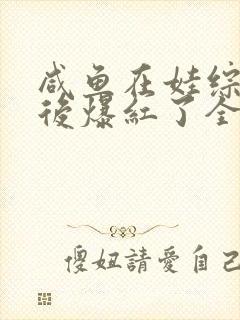 咸鱼在娃综
後爆紅了全
傻妞請愛自己